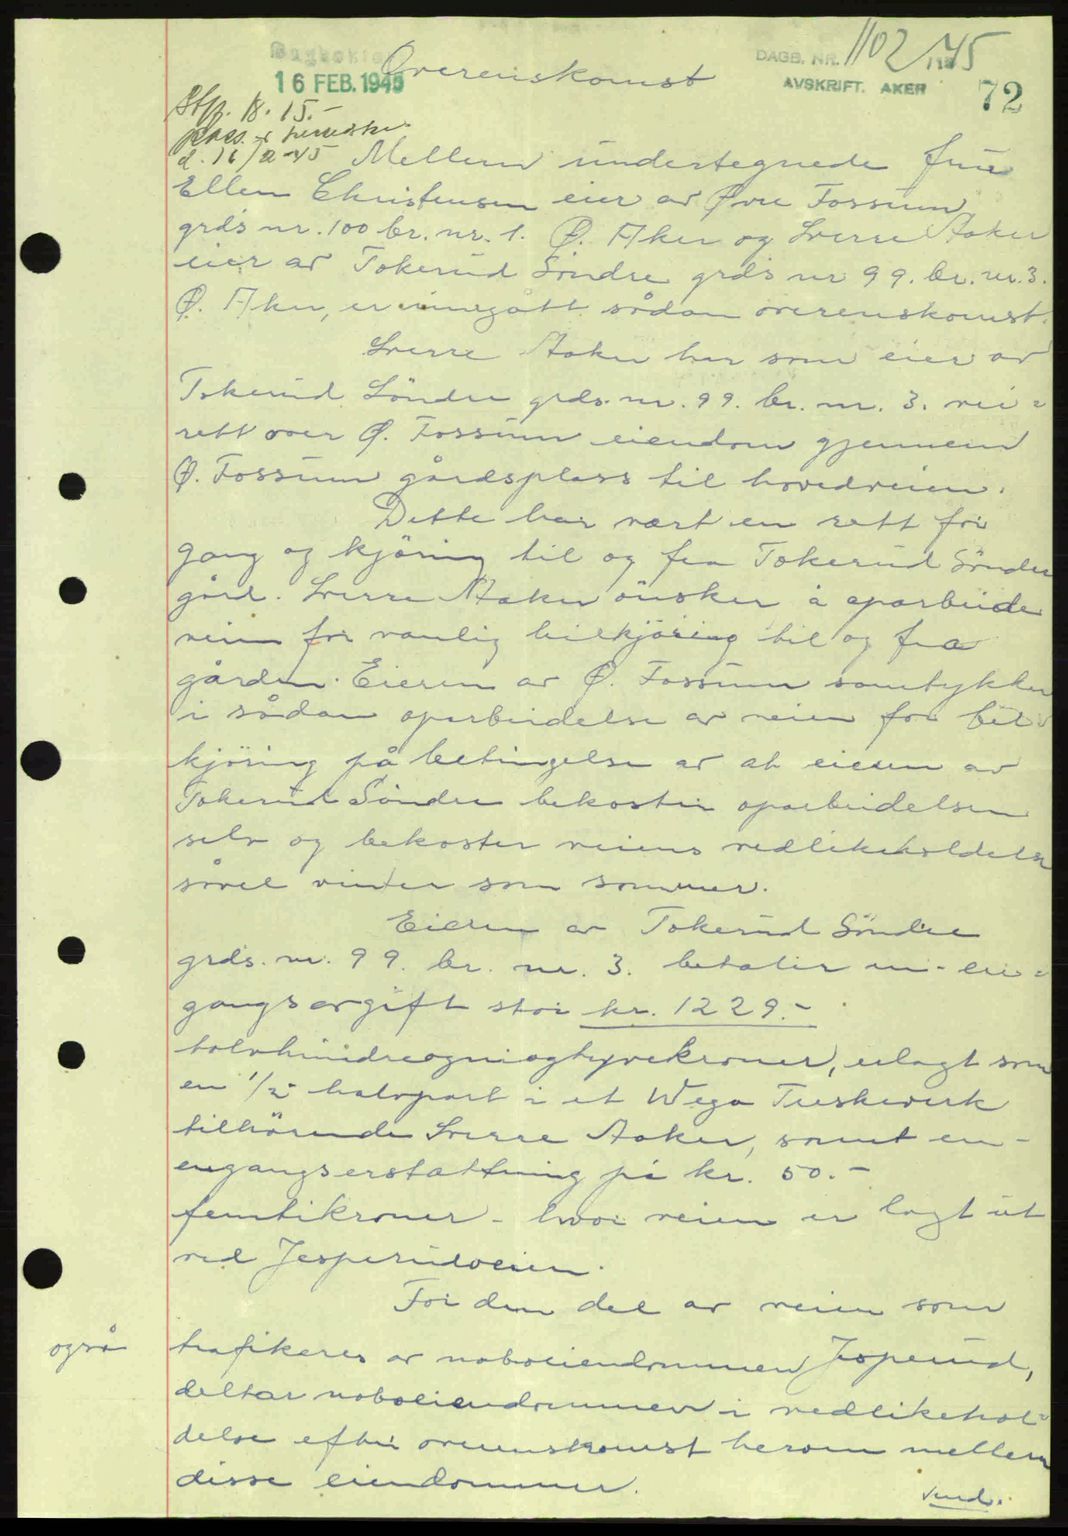 Dagboksført
16 FEB. 1945
Overenskomst
DAGB. NR. 1102/1945
AVSKRIFT. AKER
72
Stp. 18. 15.-
d. 16/2-45 Mellem undertegnede frue
Ellen Christensen eier av Øvre Fossum
grds nr. 100 br. nr. 1. Ø. Aker og Sverre Aaker
eier av Tokerud Söndre grds nr 99. br. nr. 3.
Ø. Aker, er inngått sådan overenskomst.
Sverre Aaker har som eier av
Tokerud Söndre grds. nr. 99. br. nr. 3. vei-
rett over Ø. Fossum eiendom gjennem
Ø. Fossum gårdsplass til hovedveien.
Dette har vært en rett for
gang og kjöring til og fra Tokerud Söndre
gård. Sverre Aaker önsker å oparbeide
veien for vanlig bilkjöring til og fra
gården. Eieren av Ø. Fossum samtykker
i sådan oparbeidelse av veien for bil-
kjöring på betingelse av at eieren av
Tokerud Söndre bekoster oparbeidelsen
selv og bekoster veiens vedlikeholdelse
såvel vinter som sommer.
Eieren av Tokerud Söndre
grds. nr. 99. br. nr. 3. betaler en - en=
gangsavgift stor kr. 1229.-
tolvhundreogniogtyvekroner, erlagt som
en 1/2 halvpart i et Wega Treskeverk
tilhörende Sverre Aaker, samt en -
engangserstattning på kr. 50.-
femtikroner - hvor veien er lagt ut
ved Jesperudveien.
For den del av veien som
også
trafikeres av naboeiendommen Jesperud,
deltar naboeiendommen i vedlikehol-
delse efter overenskomst herom mellem
disse eiendommer.
Vend.